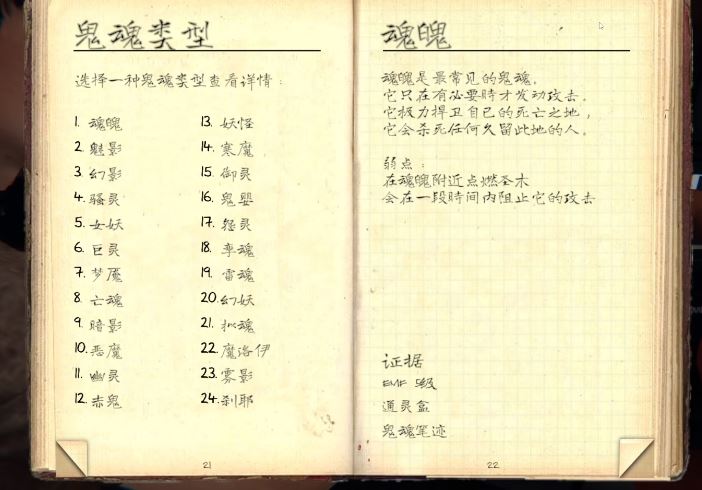 鬼魂类型
选择一种鬼魂类型查看详情：
1. 魂魄
2. 魅影
3. 幻影
4. 骚灵
5. 女妖
6. 巨灵
7. 梦魇
8. 亡魂
9. 暗影
10. 恶魔
11. 幽灵
12. 赤鬼
13. 妖怪
14. 寒魔
15. 御灵
16. 鬼婴
17. 怨灵
18. 孪魂
19. 雷魂
20. 幻妖
21. 拟魂
22. 魔洛伊
23. 雾影
24. 刹耶
21
魂魄
魂魄是最常见的鬼魂，
它只在有必要時才发动攻击。
它极力捍卫自己的死亡之地，
它会杀死任何久留此地的人。
弱点：
在魂魄附近点燃圣木
会在一段時间内阻止它的攻击
证据
EMF 5级
通灵盒
鬼魂笔迹
22